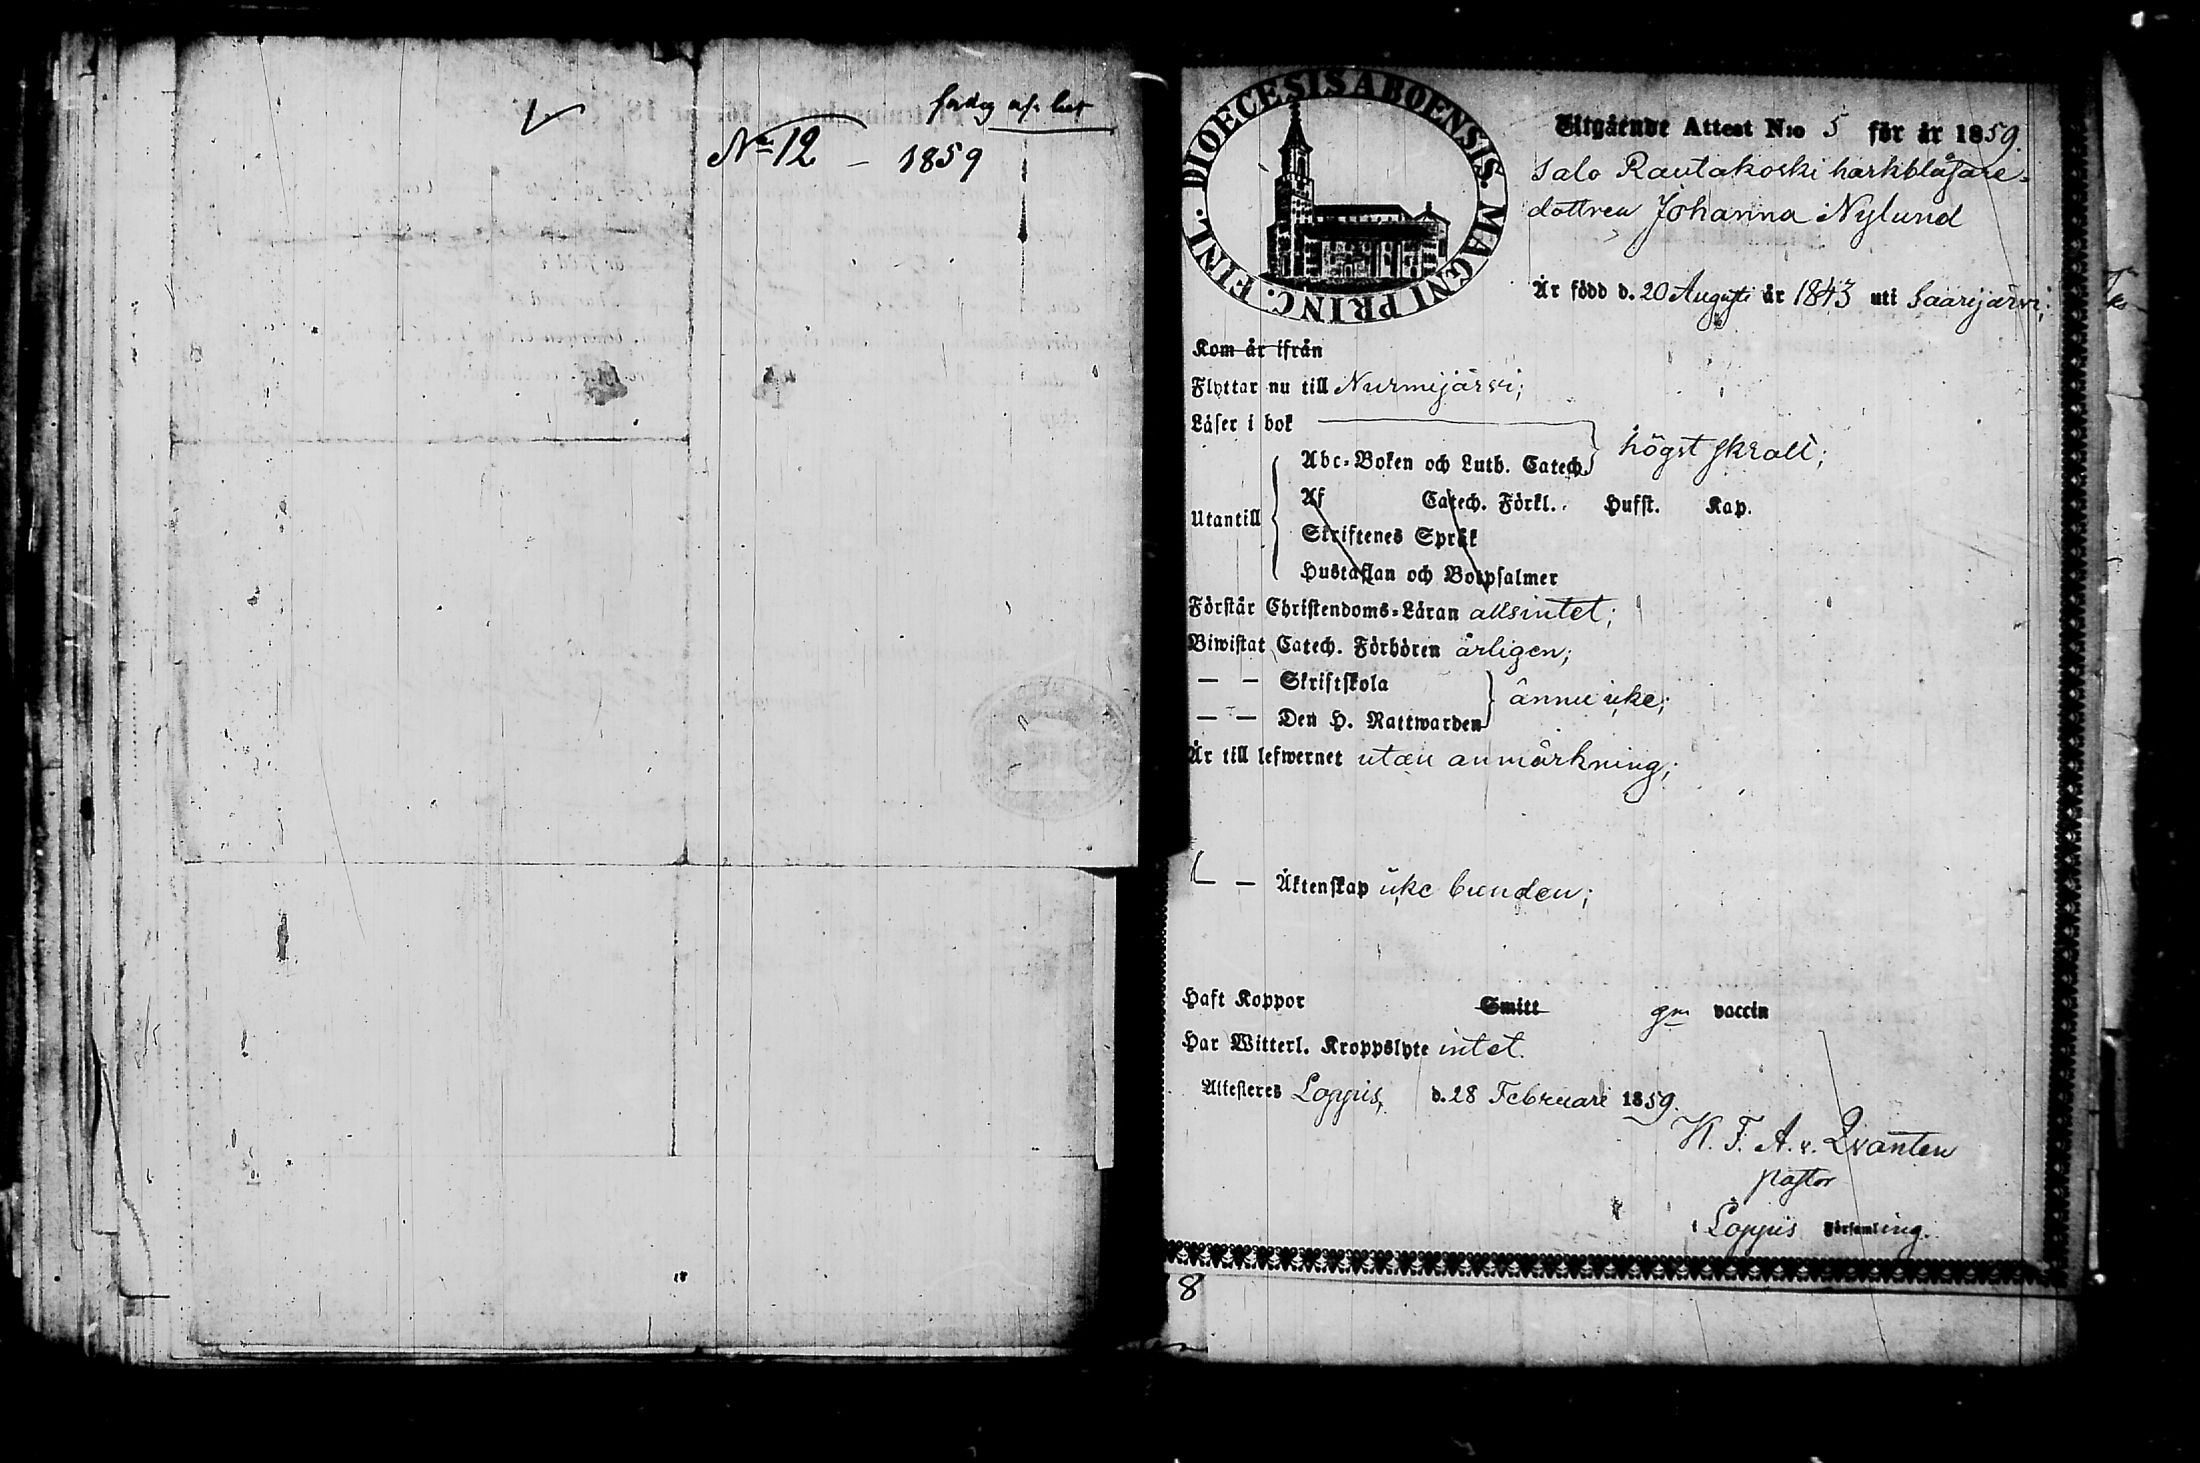 No 12 – 1859
DIOECESIS ABOENSIS. MAGNI PRINC. FINL.
Utgående Attest N:o 5 för år 1859.
Salo Rautakoski harkblåsare-
dottren Johanna Nylund
Är född d. 20 Augusti år 1843 uti Saarijärvi;
Kom år ifrån
Flyttar nu till Nurmijärvi;
Läser i bok
Abc-Boken och Luth. Catech. högst skralt;
Utantill
Af Catech. Förkl. Husst. Kap.
Skriftenes Språk
Hustaflan och Botpsalmer
Förstår Christendoms-Läran allsintet;
Biwistat Catech. Förhören årligen;
— — Skriftskola
ännu icke;
— — Den H. Nattwarden
Är till lefwernet utan anmärkning;
— — Äktenskap icke bunden;
Haft Koppor Smitt gm vaccin
Har Witterl. Kroppslyte intet.
Attesteres Loppis, d. 28 Februari 1859.
K. F. A. v. Qvanten
pastor
i Loppis Församling.
8